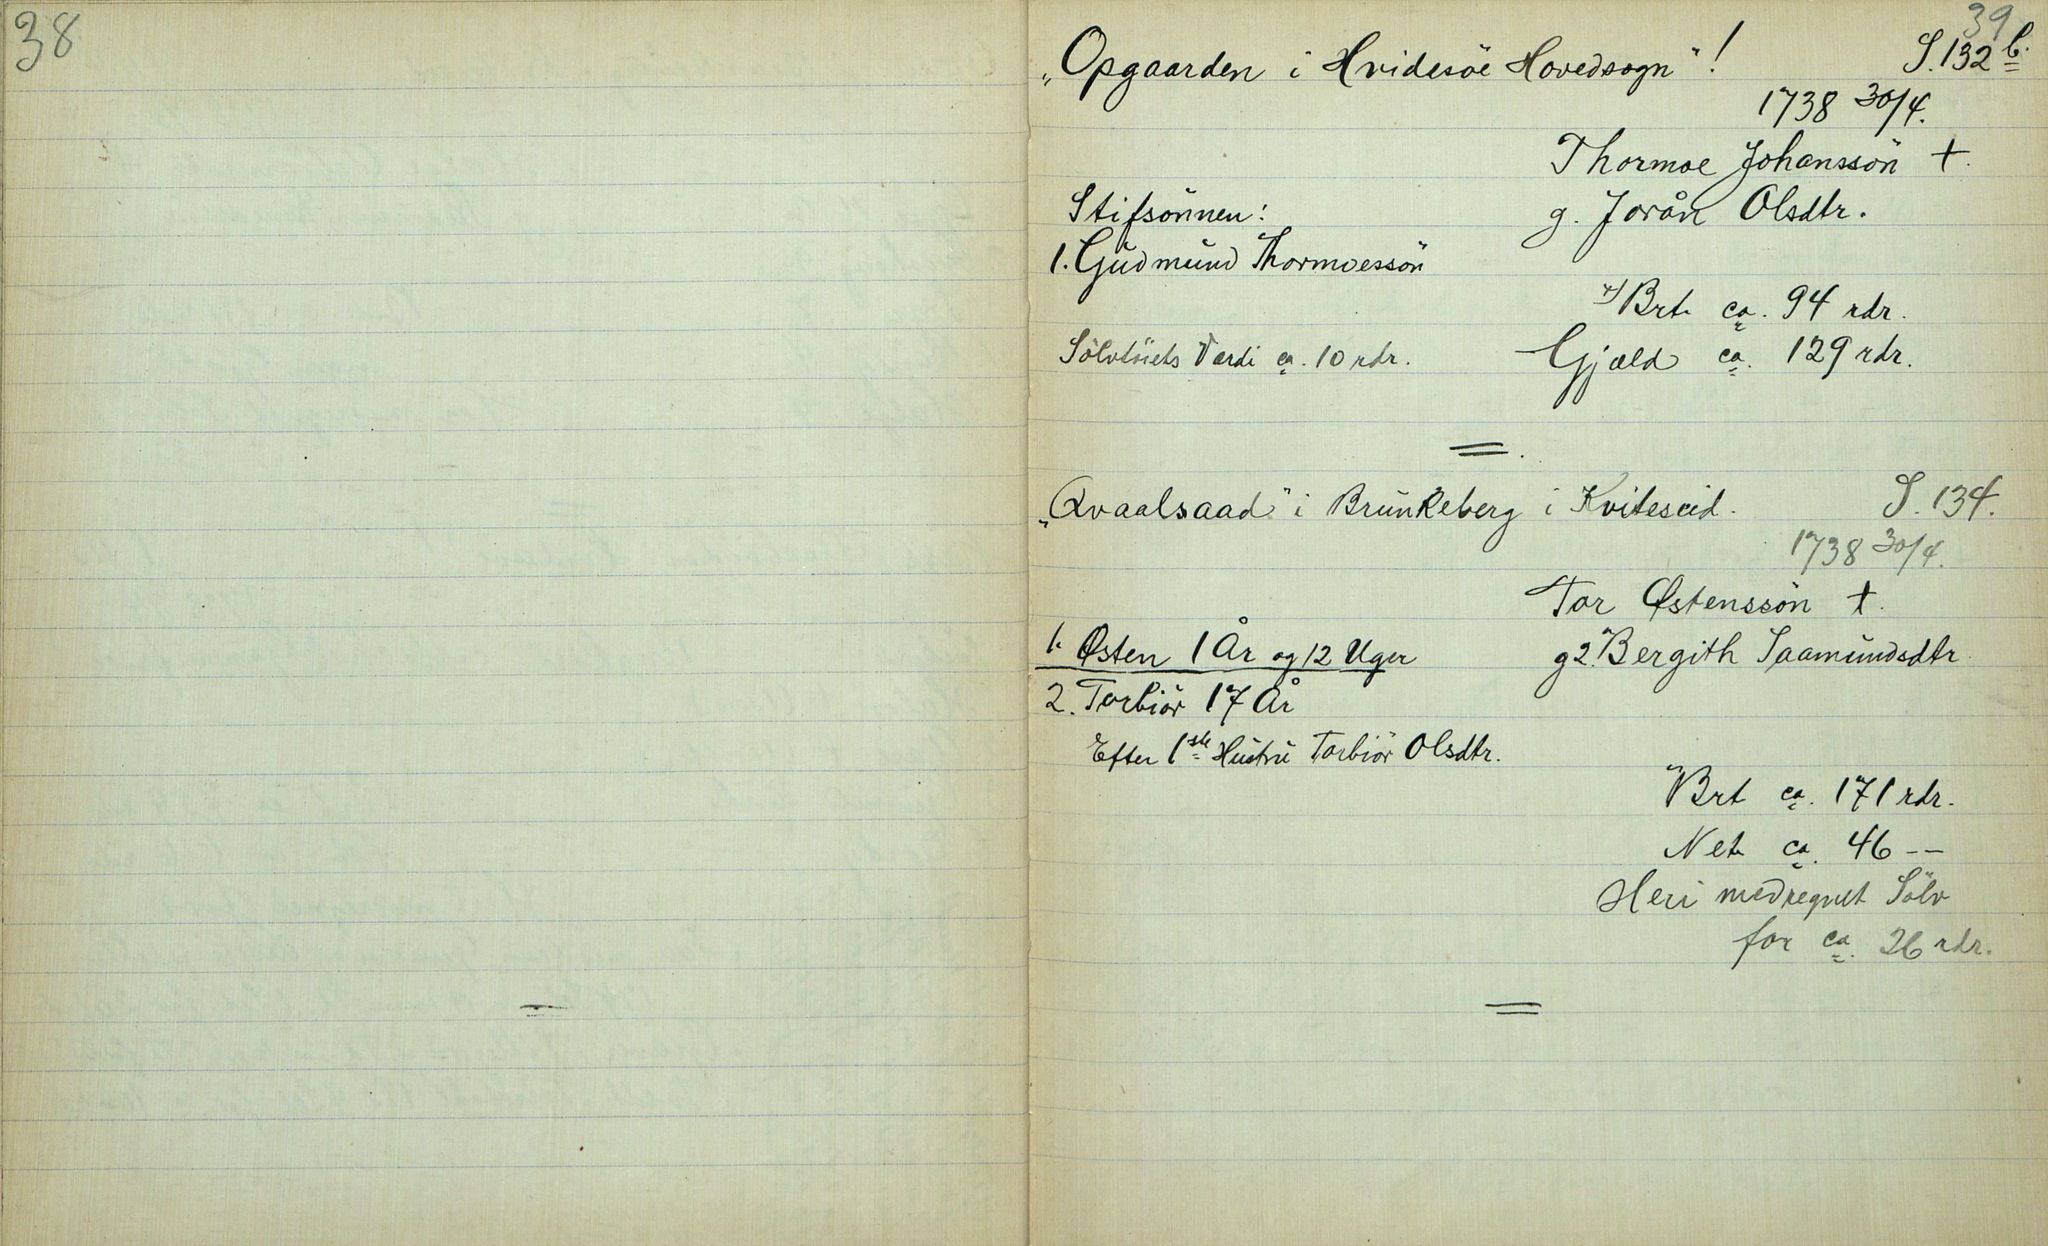 38
39
„Opgaarden i Hvidesöe Hovedsogn"! S. 132 b.
1738 30/4.
Thormoe Johanssön †.
Stifsönnen: g. Jorån Olsdtr.
1. Gudmund Thormoessön
Brt. ca. 94 rdr.
Sölvtöiets Værdi ca. 10 rdr. Gjæld ca. 129 rdr.
„Qvaalsaad" i Brunkeberg i Kviteseid. S. 134.
1738 30/4.
Tor Østenssön †.
1. Østen 1 År og 12 Uger g 2. Bergith Saamundsdtr
2. Torbiör 17 År
Efter 1ste Hustru Torbiör Olsdtr.
Brt ca. 171 rdr.
Net. ca. 46 --
Heri medregnet Sölv
for ca. 26 rdr.